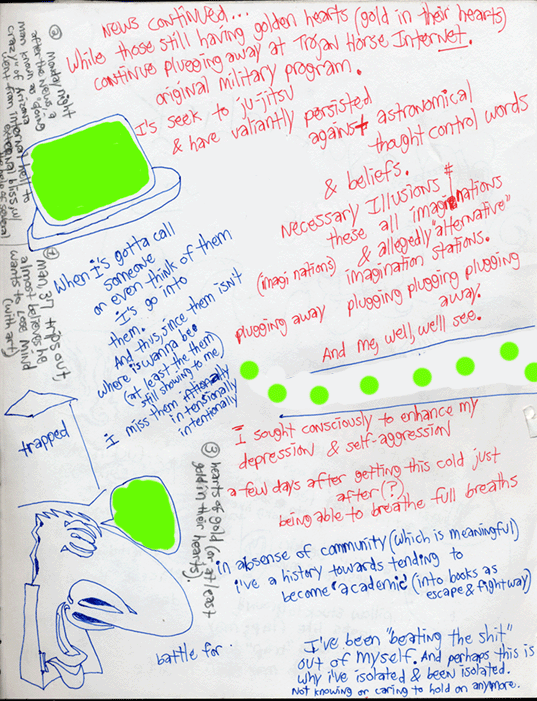 NEWS CONTINUED...
While those still having golden hearts (gold in their hearts)
continue plugging away at Trojan Horse Internet.
original military program.
I's seek to ju-jitsu
& have valiantly persisted
against astronomical
thought control words
& beliefs.
Necessary Illusions &
these all imaginations
& allegedly "alternative"
(imagi nations) imagination stations.
plugging away plugging plugging plugging
away.
And me, well, we'll see.
When I's gotta call
someone
or even think of them
I's go into
them.
And this, since them isn't
where i's wanna be
(at least the them
still showing to me)
I miss them rationally
intensionally
intentionally
I sought consciously to enhance my
depression & self-aggression
a few days after getting this cold just
after (?)
being able to breathe full breaths
in absense of community (which is meaningful)
i've a history towards tending to
become "academic" (into books as
escape & fightway)
I've been "beating the shit"
out of myself. And perhaps this is
why i've isolated & been isolated.
Not knowing or caring to hold on anymore.
trapped
battle for
③ hearts of gold (or at least
gold in their hearts)
① Man, 37 trips out,
almost barfess
wants to lose mind
(with art)
②
after the
man known as "going
crazy" of Arizona
sent from Internet hell to